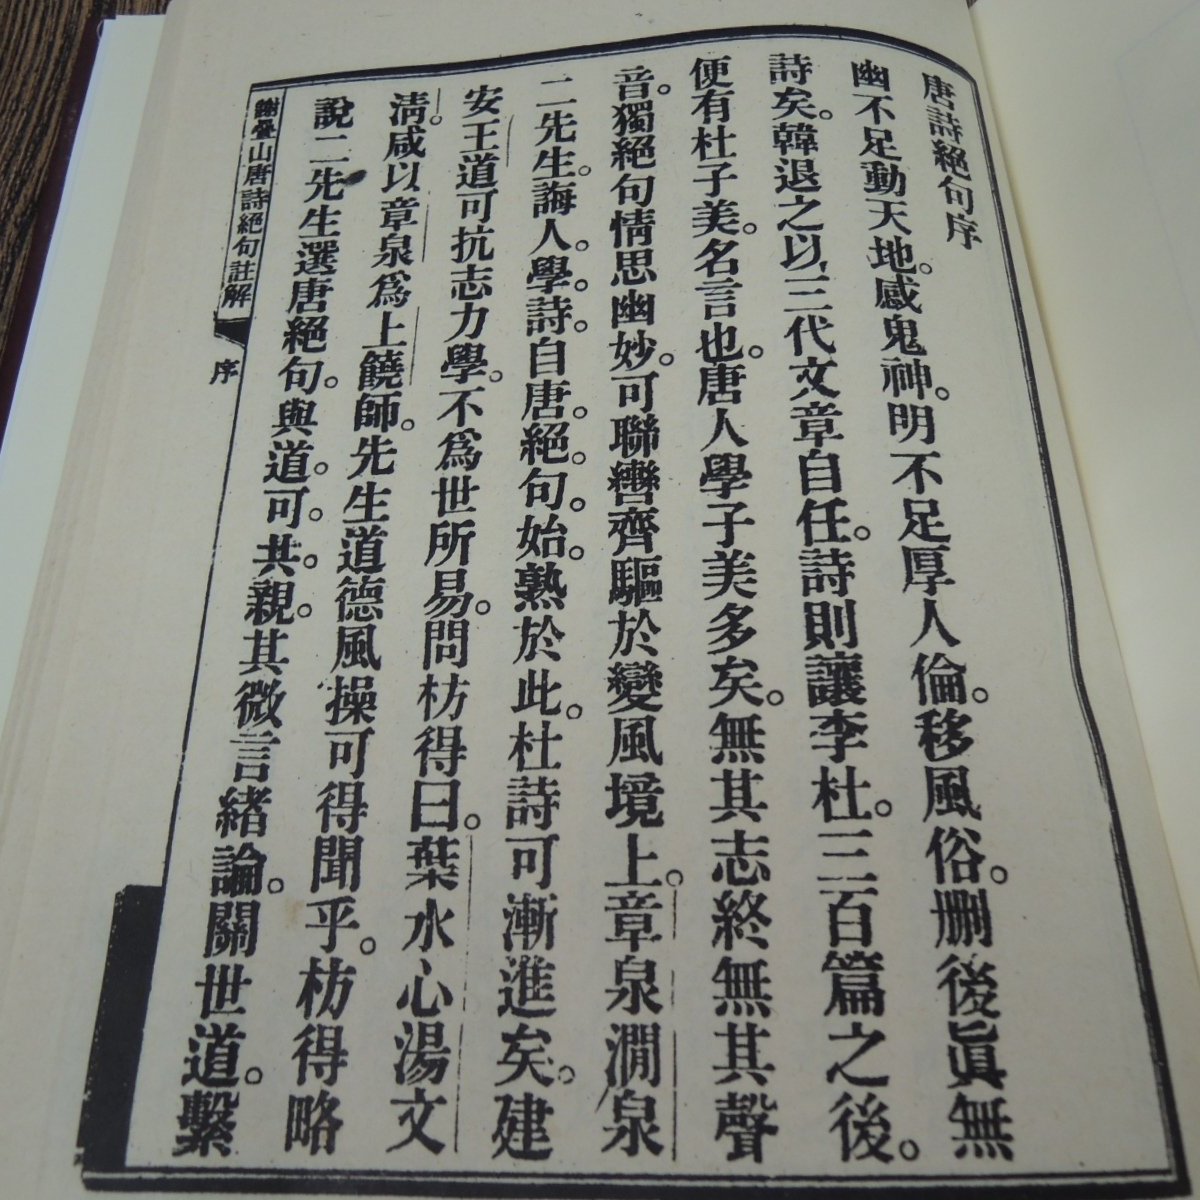 唐詩絕句序
幽不足動天地。感鬼神。明不足厚人倫。移風俗。刪後眞無
詩矣。韓退之以三代文章自任。詩則讓李杜。三百篇之後。
便有杜子美。名言也。唐人學子美多矣。無其志終無其聲
音。獨絕句情思幽妙。可聯轡齊驅於變風境上。章泉澗泉
二先生。誨人。學。詩。自唐。絕。句。始。熟於此。杜詩可漸進矣。建
安王道可抗志力學。不爲世所易。問枋得曰。葉水心湯文
淸。咸以章泉爲上饒師。先生道德風操可得聞乎。枋得略
說二先生選唐絕句。與道。可。共。親。其微言緒論。關世道。繫
謝疊山唐詩絕句註解
序